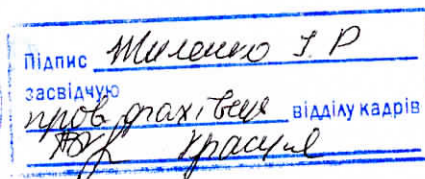 Підпис Жиленко І. Р
засвідчую
пров. фахівець відділу кадрів
Красуля